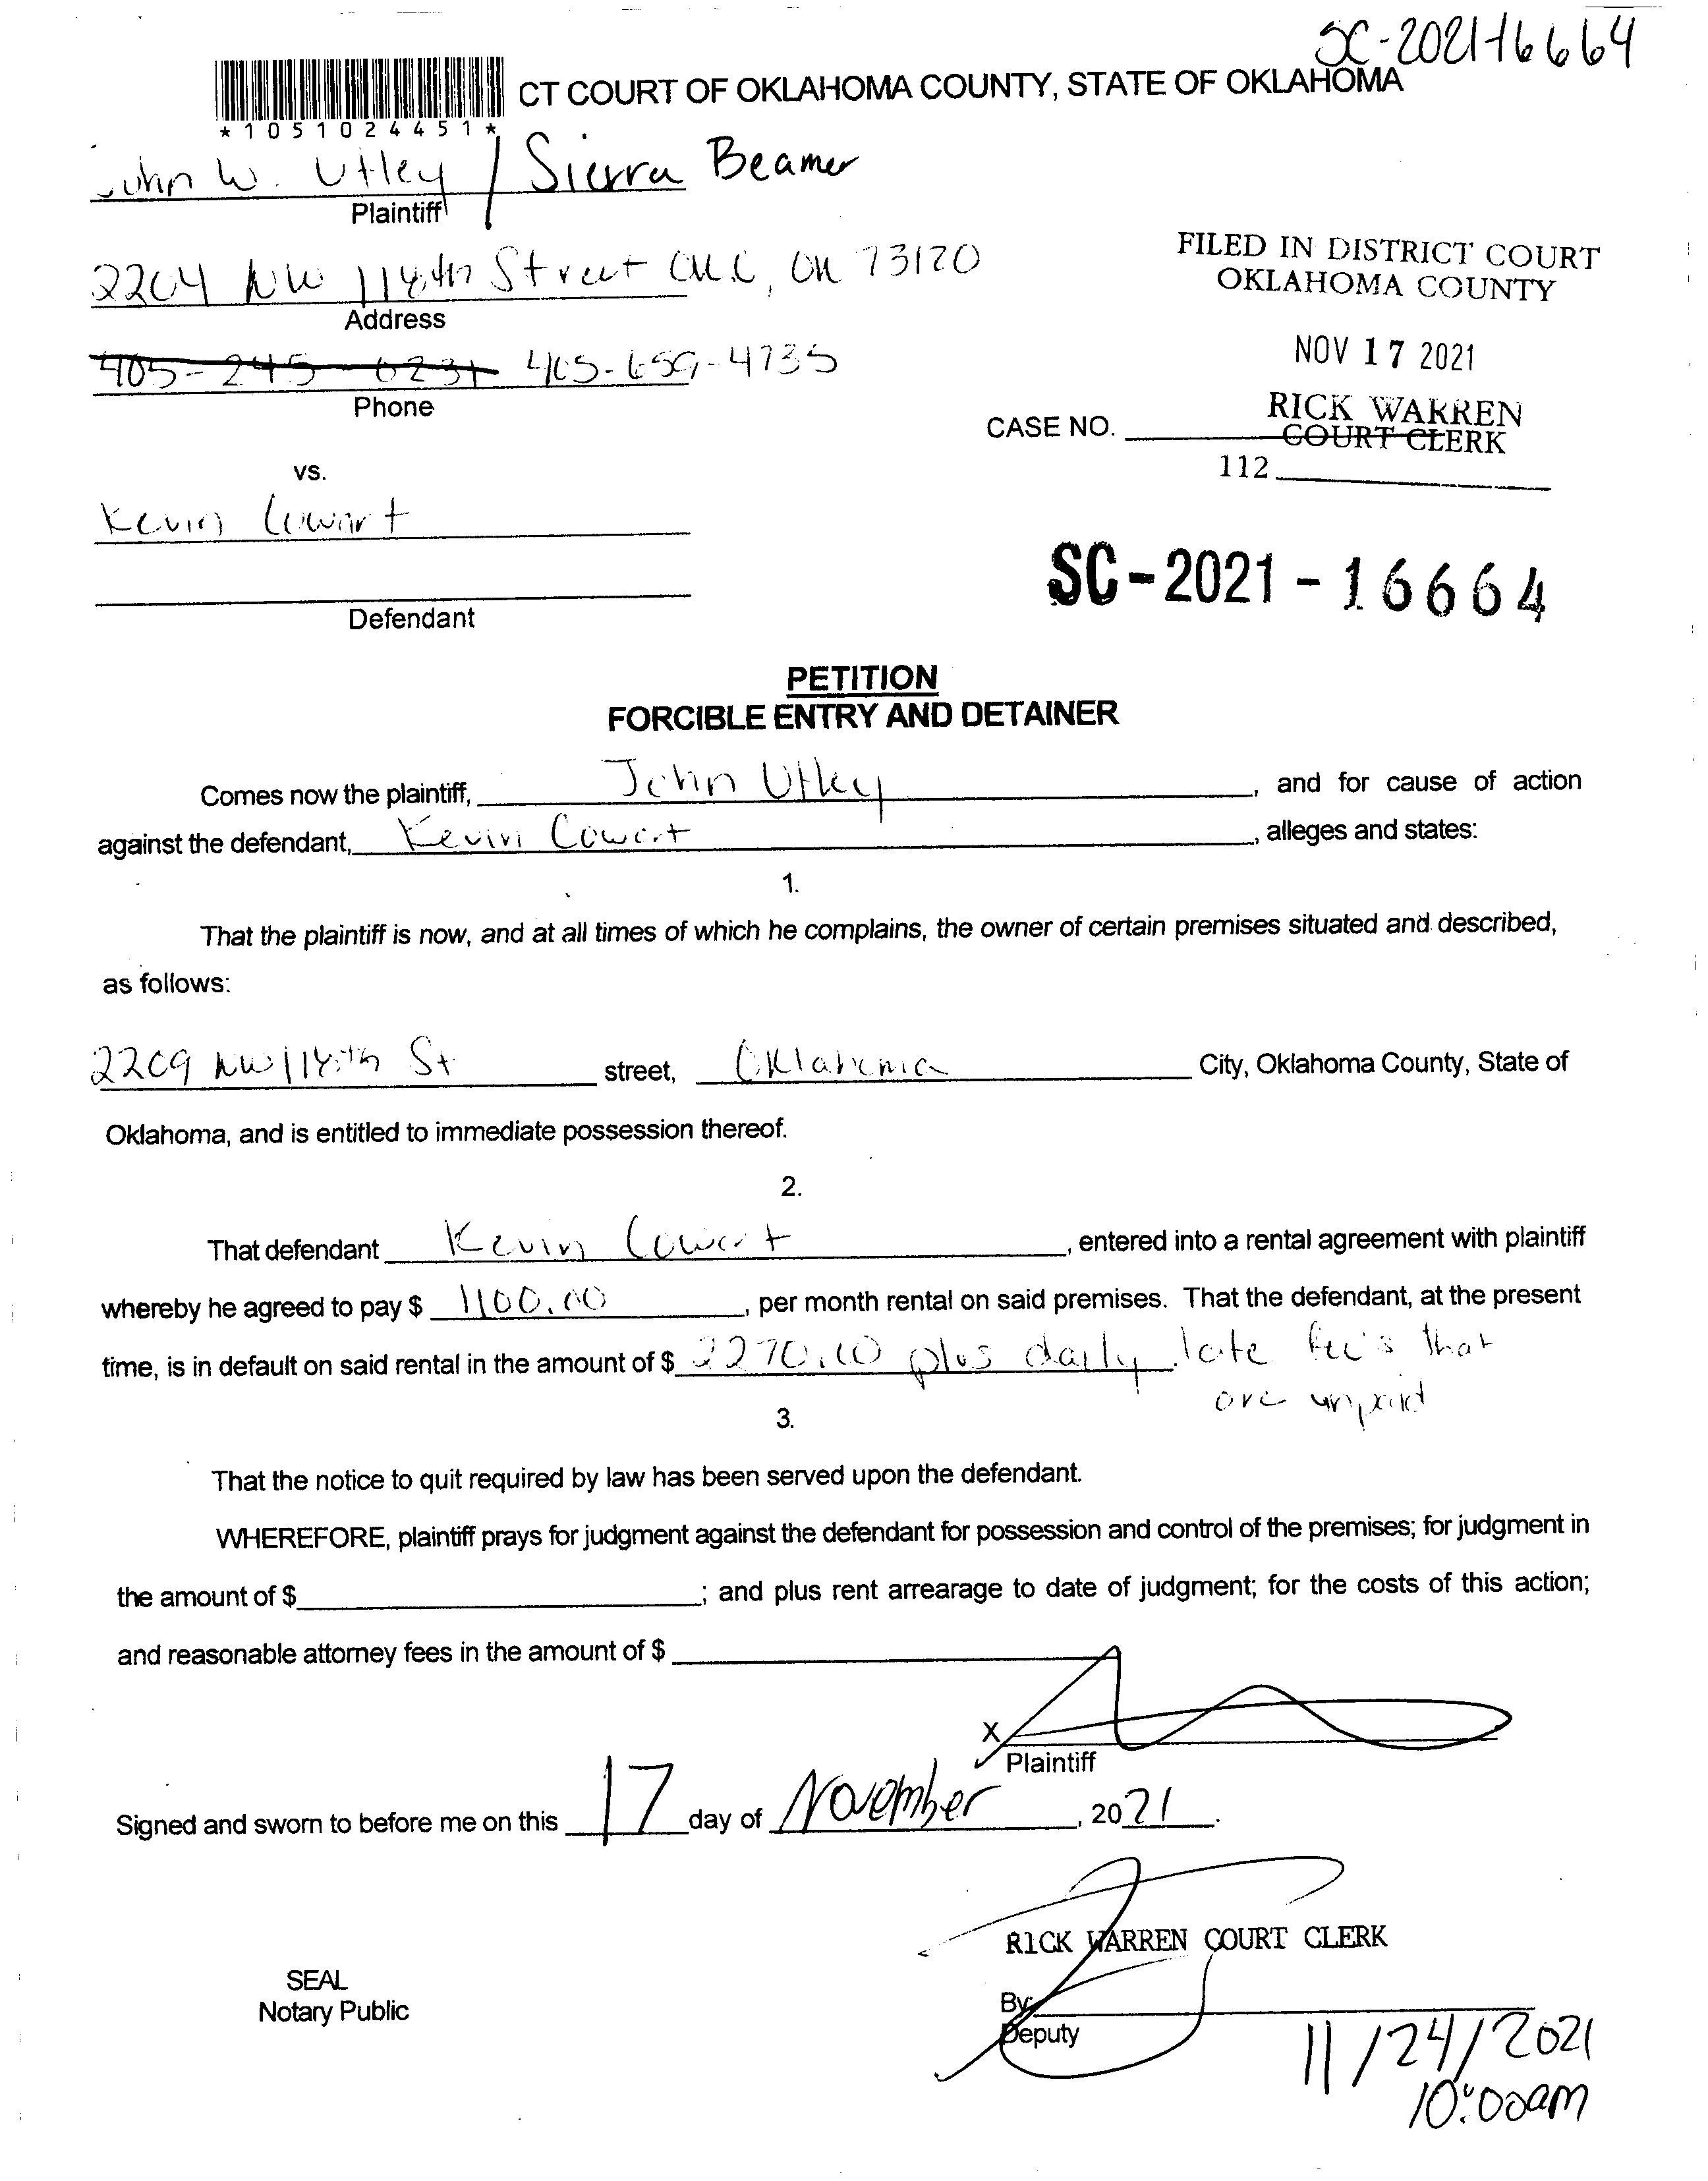 SC-2021-16664
CT COURT OF OKLAHOMA COUNTY, STATE OF OKLAHOMA
*1051024451*
John W. Utley / Sierra Beamer
Plaintiff
2204 NW 118th Street OKC, OK 73120
Address
405-245-0231 405-659-4735
Phone
FILED IN DISTRICT COURT
OKLAHOMA COUNTY
NOV 17 2021
RICK WARREN
COURT CLERK
CASE NO.
112
vs.
Kevin Cowart
Defendant
SC-2021-16664
PETITION
FORCIBLE ENTRY AND DETAINER
Comes now the plaintiff, John Utley, and for cause of action
against the defendant, Kevin Cowart, alleges and states:
1.
That the plaintiff is now, and at all times of which he complains, the owner of certain premises situated and described,
as follows:
2209 NW 118th St street, Oklahoma City, Oklahoma County, State of
Oklahoma, and is entitled to immediate possession thereof.
2.
That defendant Kevin Cowart, entered into a rental agreement with plaintiff
whereby he agreed to pay $ 1100.00, per month rental on said premises. That the defendant, at the present
time, is in default on said rental in the amount of $ 2270.00 plus daily late fee's that
are unpaid
3.
That the notice to quit required by law has been served upon the defendant.
WHEREFORE, plaintiff prays for judgment against the defendant for possession and control of the premises; for judgment in
the amount of $ ; and plus rent arrearage to date of judgment; for the costs of this action;
and reasonable attorney fees in the amount of $
X
Plaintiff
Signed and sworn to before me on this 17 day of November, 2021.
RICK WARREN COURT CLERK
SEAL
Notary Public
By
Deputy
11/24/2021
10:00am